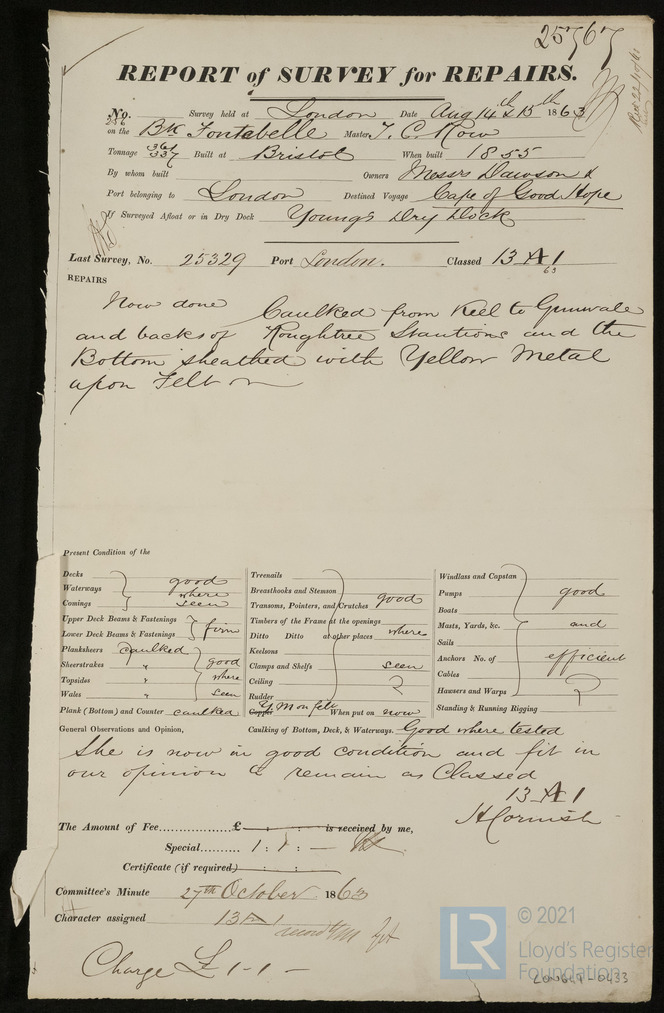 25767
REPORT of SURVEY for REPAIRS.
No. 256 Survey held at London Date Aug 14th & 15th 1863
on the Bk Fontabelle Master T. C. Row
Tonnage 361 337 Built at Bristol When built 1855
By whom built Owners Messrs Dawson &
Port belonging to London Destined Voyage Cape of Good Hope
If Surveyed Afloat or in Dry Dock Youngs Dry Dock
Last Survey, No. 25329 Port London. Classed 13 A 1
63
REPAIRS
Now done Caulked from Keel to Gunwale
and backs of Roughtree Stantions and the
Bottom sheathed with Yellow Metal
upon Felt
Present Condition of the
Decks
Waterways
Comings
good
where
seen
Upper Deck Beams & Fastenings
Lower Deck Beams & Fastenings
firm
Planksheers caulked
Sheerstrakes "
Topsides "
Wales "
good
where
seen
Plank (Bottom) and Counter caulked
Treenails
Breasthooks and Stemson
Transoms, Pointers, and Crutches good
Timbers of the Frame at the openings
Ditto Ditto at other places where
Keelsons
Clamps and Shelfs seen
Ceiling
Rudder
Copper Y M on felt When put on now
Windlass and Capstan
Pumps good
Boats
Masts, Yards, &c. and
Sails
Anchors No. of efficient
Cables
Hawsers and Warps
Standing & Running Rigging
General Observations and Opinion, Caulking of Bottom, Deck, & Waterways. Good where tested
She is now in good condition and fit in
our opinion to remain as Classed
13 A 1
H Cornish
The Amount of Fee £ : : is received by me,
Special 1 : 1 : —
Certificate (if required) : :
Committee's Minute 27th October 1863
Character assigned 13 A 1
Charge £ 1-1-
LR
© 2021
Lloyd's Register
Foundation
LON649-0433